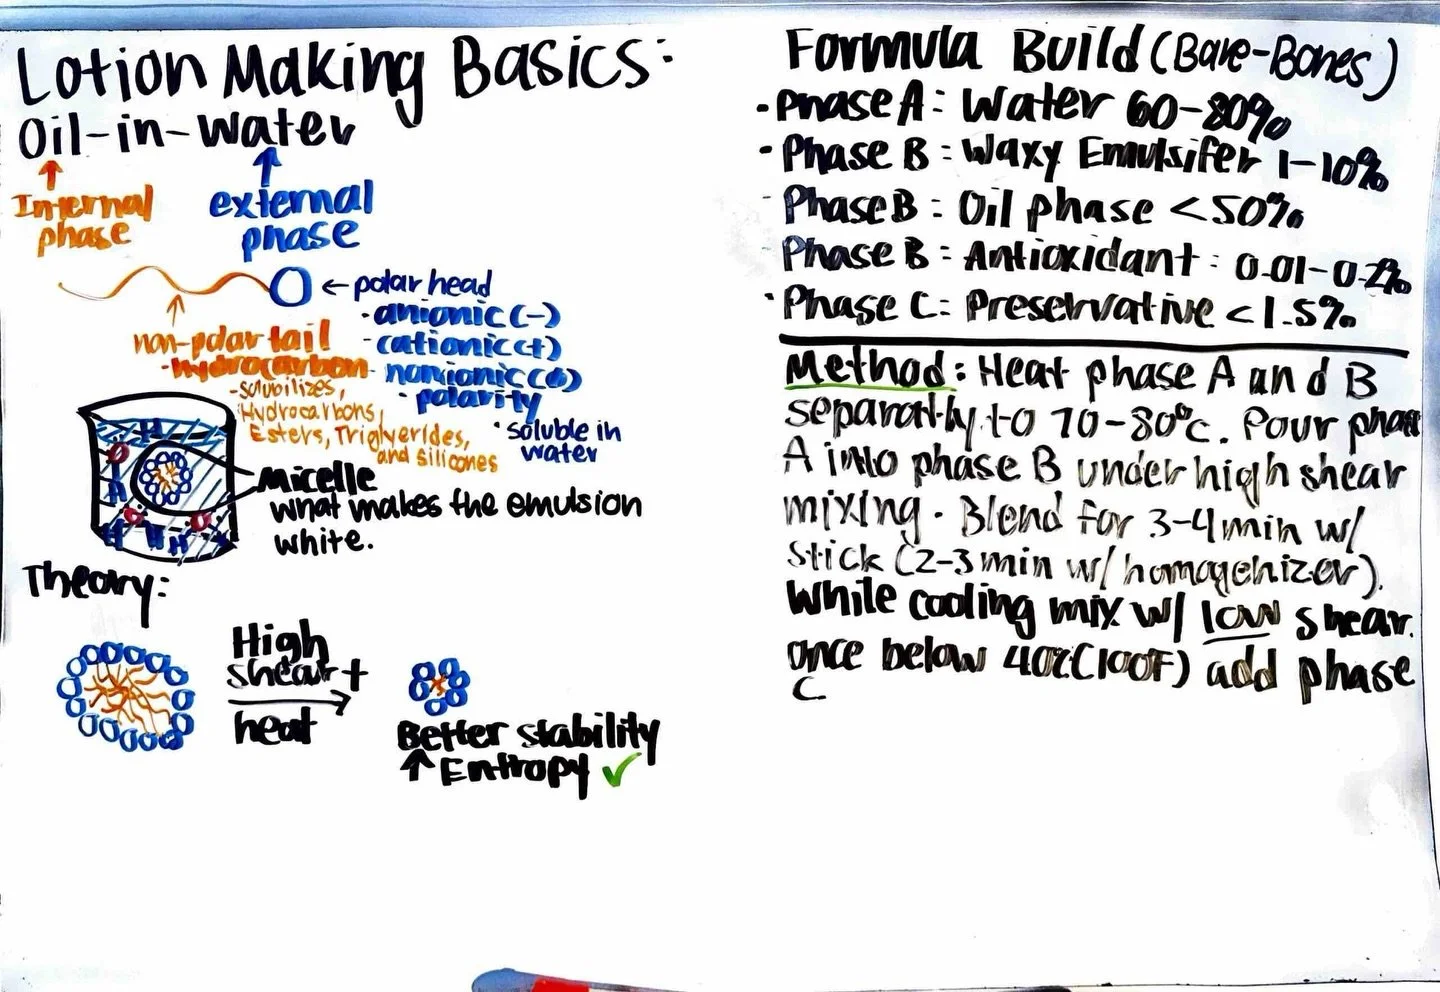 Lotion Making Basics:
Oil-in-water
Internal
phase
external
phase
←polar head
-anionic(-)
-cationic(+)
- nonionic(ϕ)
• polarity
• soluble in
water
non-polar tail
-hydrocarbon
-solubilizes,
Hydrocarbons,
Esters, Triglyerides,
and silicones
Micelle
what makes the emulsion
white.
Theory:
High
shear +
heat
Better stability
↑ Entropy ✓
Formula Build (Bare-Bones)
• Phase A: Water 60-80%
• Phase B: Waxy Emulsifer 1-10%
- Phase B: Oil phase <50%
Phase B: Antioxidant: 0.01-0.2%
• Phase C: Preservative <1.5%
Method: Heat phase A and B
separatly to 70-80°c. Pour phase
A into phase B under high shear
mixing. Blend for 3-4min w/
stick (2-3min w/homogenizer).
While cooling mix w/ low shear.
once below 40c(100F) add phase
C